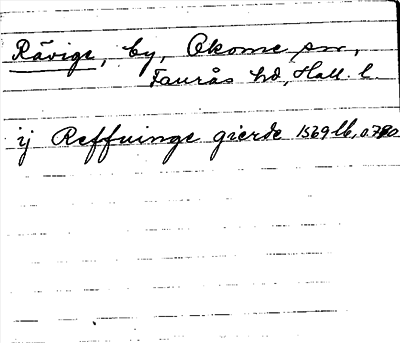 Rävige, by, Okome sn,
Faurås hd, Hall. l.
ij Reffuinge gierde 1569 lb, 0.7